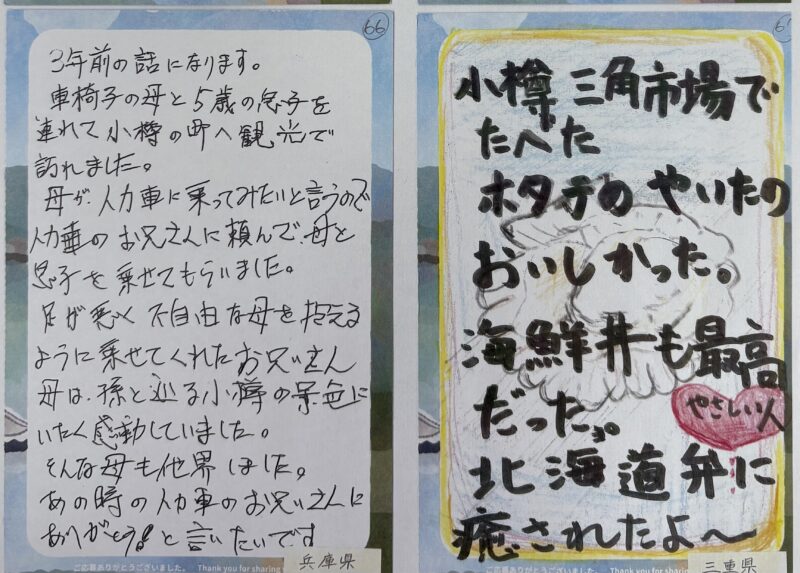 66
3年前の話になります。
車椅子の母と5歳の息子を
連れて小樽の町へ観光で
訪れました。
母が人力車に乗ってみたいと言うので
人力車のお兄さんに頼んで、母と
息子を乗せてもらいました。
足が悪く不自由な母を抱える
ように乗せてくれたお兄さん
母は、孫と巡る小樽の景色に
いたく感動していました。
そんな母も他界しました。
あの時の人力車のお兄さんに
ありがとう!と言いたいです
ご応募ありがとうございました。 Thank you for sharing
兵庫県
小樽 三角市場で
たべた
ホタテの やいたの
おいしかった。
海鮮丼も最高
だった。
やさしい人
北海道弁に
癒されたよ〜
ご応募ありがとうございました。 Thank you for sharing
三重県